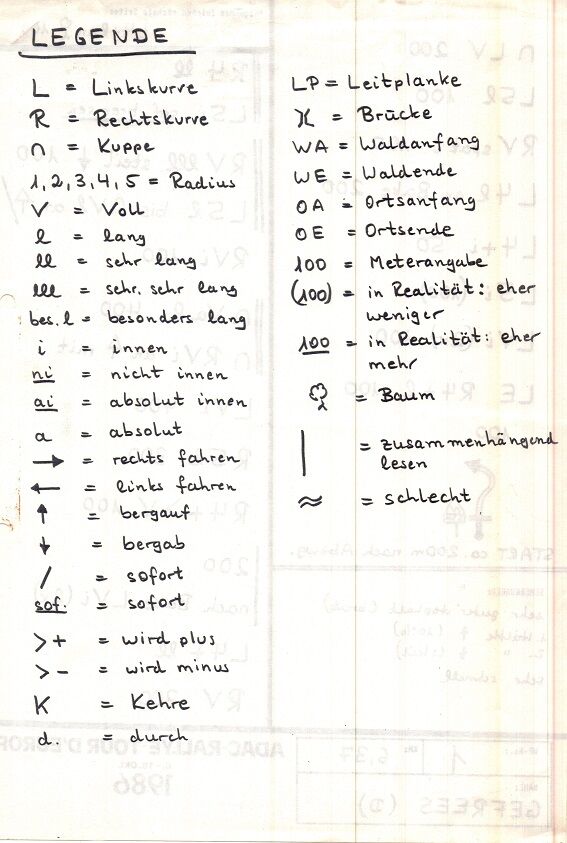 LEGENDE
L = Linkskurve
R = Rechtskurve
∩ = Kuppe
1, 2, 3, 4, 5 = Radius
V = Voll
l = lang
ll = sehr lang
lll = sehr. sehr lang
bes. l = besonders lang
i = innen
ni = nicht innen
ai = absolut innen
a = absolut
→ = rechts fahren
← = links fahren
↑ = bergauf
↓ = bergab
/ = sofort
sof. = sofort
>+ = wird plus
>- = wird minus
K = Kehre
d. = durch
LP = Leitplanke
)( = Brücke
WA = Waldanfang
WE = Waldende
OA = Ortsanfang
OE = Ortsende
100 = Meterangabe
(100) = in Realität: eher
weniger
100 = in Realität: eher
mehr
= Baum
| = zusammenhängend
lesen
≈ = schlecht
ADAC-RALLYE-TOUR D'EUROP
1986
GEFREES (D)